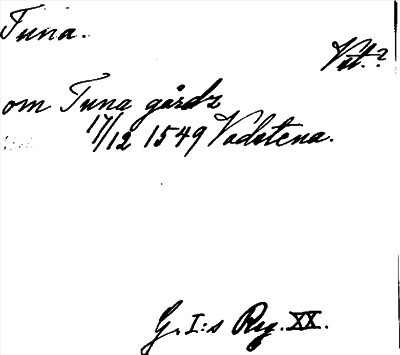 Tuna.
Vst.?
om Tuna gårdz
17/12 1549 Vadstena.
G. I:s Reg. XX.